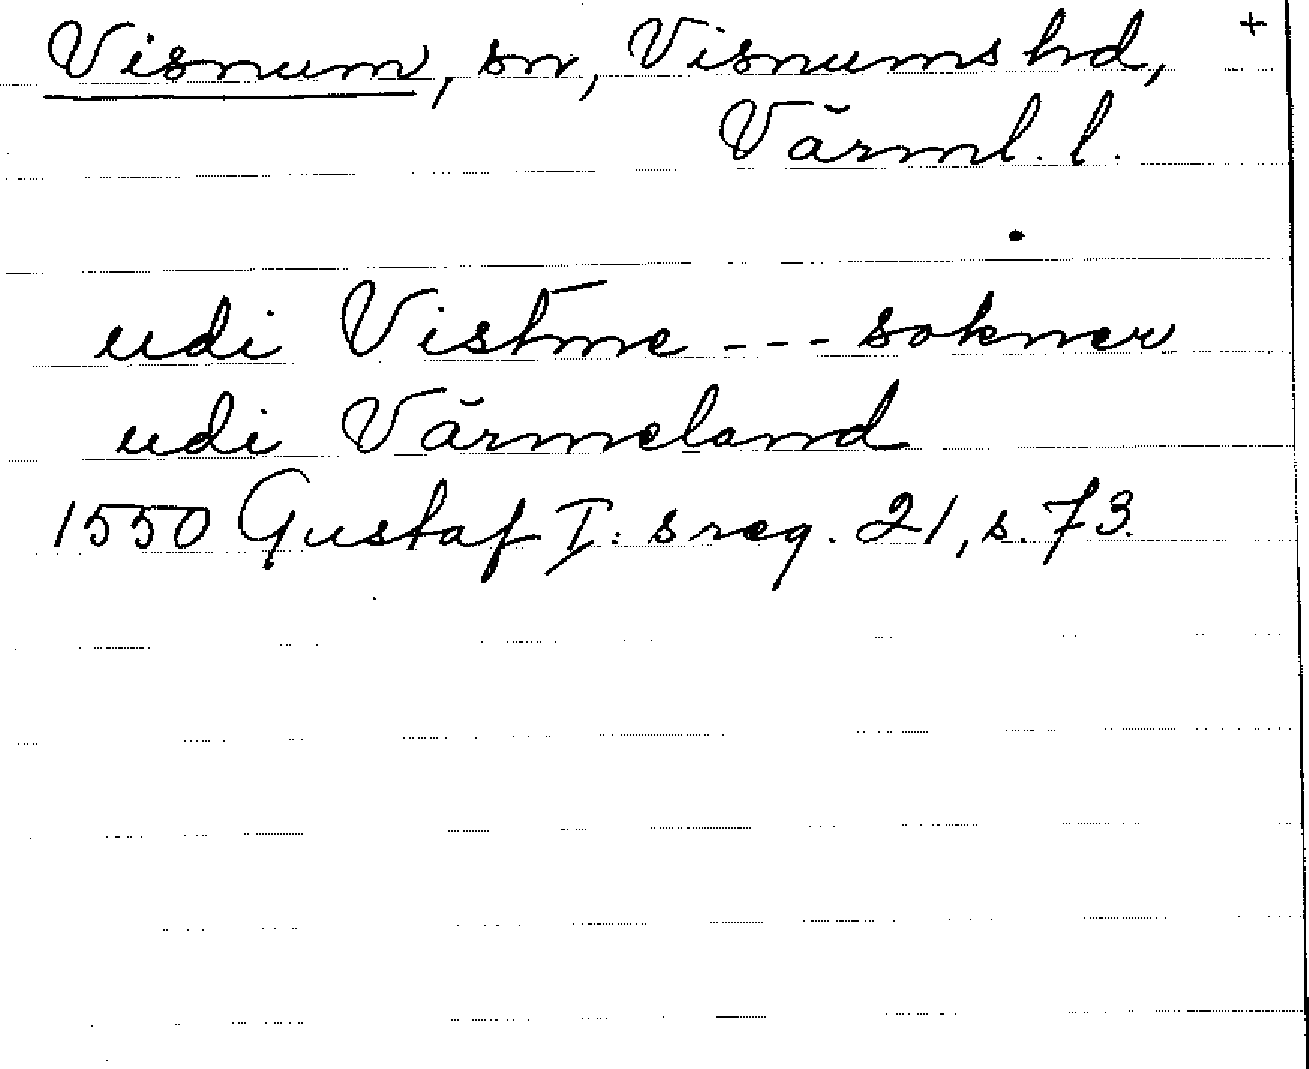 Visnum, sn, Visnums hd, +
Värml. l.
udi Vistme --- sokner
udi Värmeland
1550 Gustaf I:s reg. 21, s. 73.